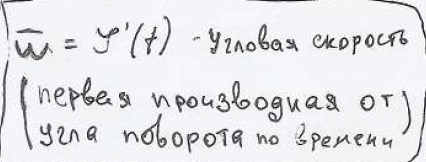 ω̄ = φ'(t) - Угловая скорость
(первая производная от
угла поворота по времени)